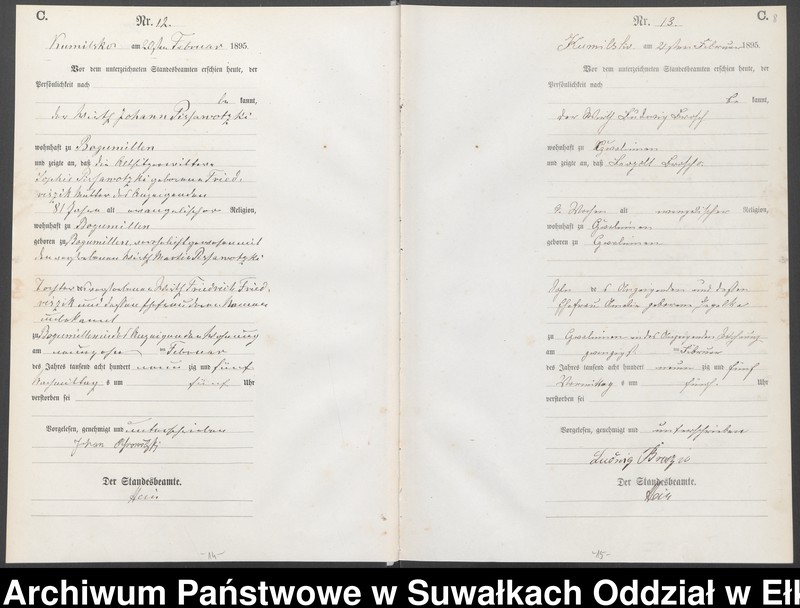 C.
Nr. 12.
Kumilsko am 20sten Februar 1895.
Vor dem unterzeichneten Standesbeamten erschien heute, der
Persönlichkeit nach
be kannt,
der Wirth Johann
wohnhaft zu Bogumillen
und zeigte an, daß die Altsitzerwittwe
Sophie geborene Fried-
riszik Mutter des Anzeigenden
81 Jahre alt evangelischer Religion,
wohnhaft zu Bogumillen
geboren zu Bogumillen, verehelicht gewesen mit
dem verstorbenen Wirth Martin
Tochter des verstorbenen Wirth Friedrich Fried-
riszik und dessen Ehefrau deren Namen
unbekannt
zu Bogumillen in des Anzeigenden Wohnung
am neunzehn ten Februar
des Jahres tausend acht hundert neun zig und fünf
Nachmittag s um fünf Uhr
verstorben sei
Vorgelesen, genehmigt und unterschrieben
Johan
Der Standesbeamte.
-14-
C. 8
Nr. 13.
Kumilsko am 21sten Februar 1895.
Vor dem unterzeichneten Standesbeamten erschien heute, der
Persönlichkeit nach
be kannt,
der Wirth Ludwig
wohnhaft zu Gwalinnen
und zeigte an, daß
9 Wochen alt evangelischer Religion,
wohnhaft zu Gwalinnen
geboren zu Gwalinnen
Sohn des Anzeigenden und dessen
Ehefrau Amalie geborene
zu Gwalinnen in des Anzeigenden Wohnung
am zwanzigst ten Februar
des Jahres tausend acht hundert neun zig und fünf
Vormittag s um fünf Uhr
verstorben sei
Vorgelesen, genehmigt und unterschrieben
Ludwig
Der Standesbeamte.
-15-
Archiwum Państwowe w Suwałkach Oddział w Ełk